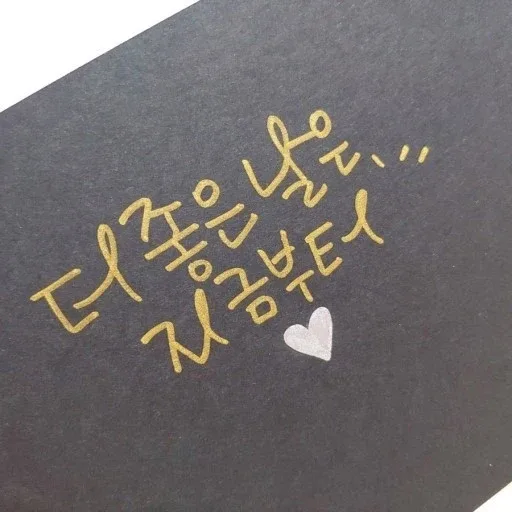 더 좋은 날은...
지금부터